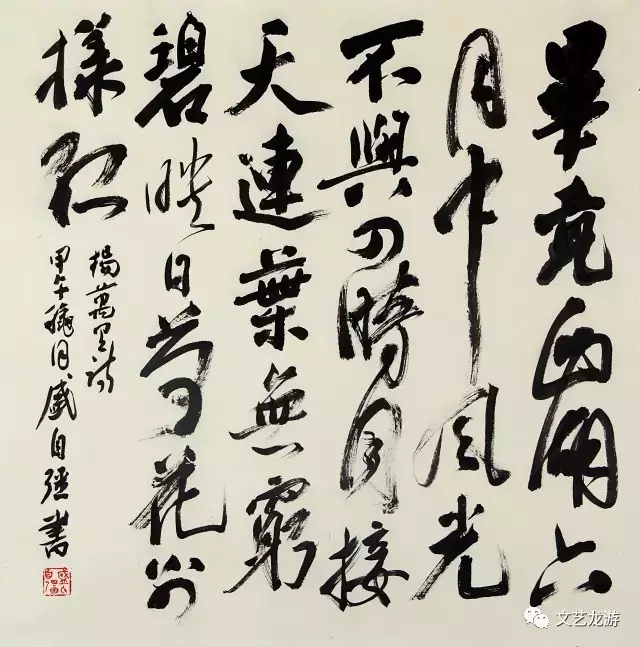 畢竟西湖六
月中風光
不與四時同接
天連葉無窮
碧映日荷花別
樣紅
楊萬里詩
甲午穐月盛自强書
文艺龙游